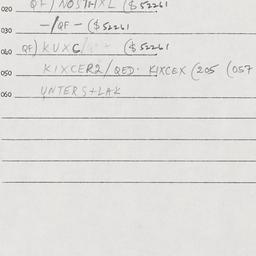 020 QF) NOSTFIXL ($52261
030 -/QF - ($52261
040 QF) KUXC/ ($52261
050 KIXCER2/QED. KIXCEX (205 (057
060 UNTERS+LAK